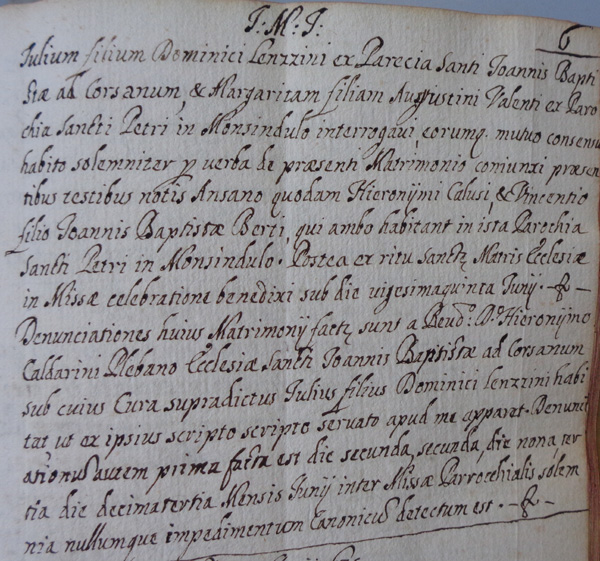 J: M: J:
6
Iulium filium Dominici Lenzzini ex Parecia Santi Ioannis Bapti
stæ ad Corsanum, & Margaritam filiam Augustini Valenti ex Paro
chia Sancti Petri in Monsindulo interrogaui eorumq. mutuo consensu
habito solemniter p verba de præsenti Matrimonio coniunxi præsen
tibus testibus notis Ansano quodam Hieronijmi Calusi & Vincentio
filio Ioannis Baptistæ Berti, qui ambo habitant in ista Parochia
Sancti Petri in Monsindulo. Postea ex ritu sanctę Matris Ecclesiæ
in Missæ celebratione benedixi sub die uigesimaquinta Iunij.
Denunciationes huius Matrimonij factę sunt a Reud.º D.º Hieronijmo
Caldarini Plebano Ecclesiæ Santi Ioannis Baptistæ ad Corsanum
sub cuius Cura supradictus Iulius filius Dominici Lenzzini habi
tat ut ex ipsius scripto scripto seruato apud me apparet. Denunci
ationum autem prima facta est die secunda, secunda die nona, ter
tia die decimatertia Mensis Iunij inter Missæ Parrochialis solem
nia nullumque impedimentum Canonicum detectum est.